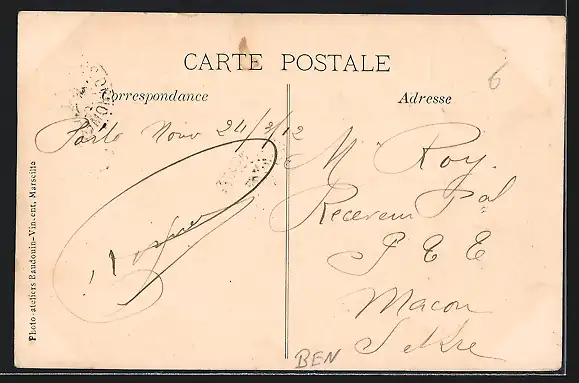 CARTE POSTALE
Correspondance
Adresse
6
Porto Novo 24/2/12
Mr Roy.
Receveur Pal
P T T
Macon
S et Lre
BEN
Photo-ateliers Baudouin-Vincent, Marseille